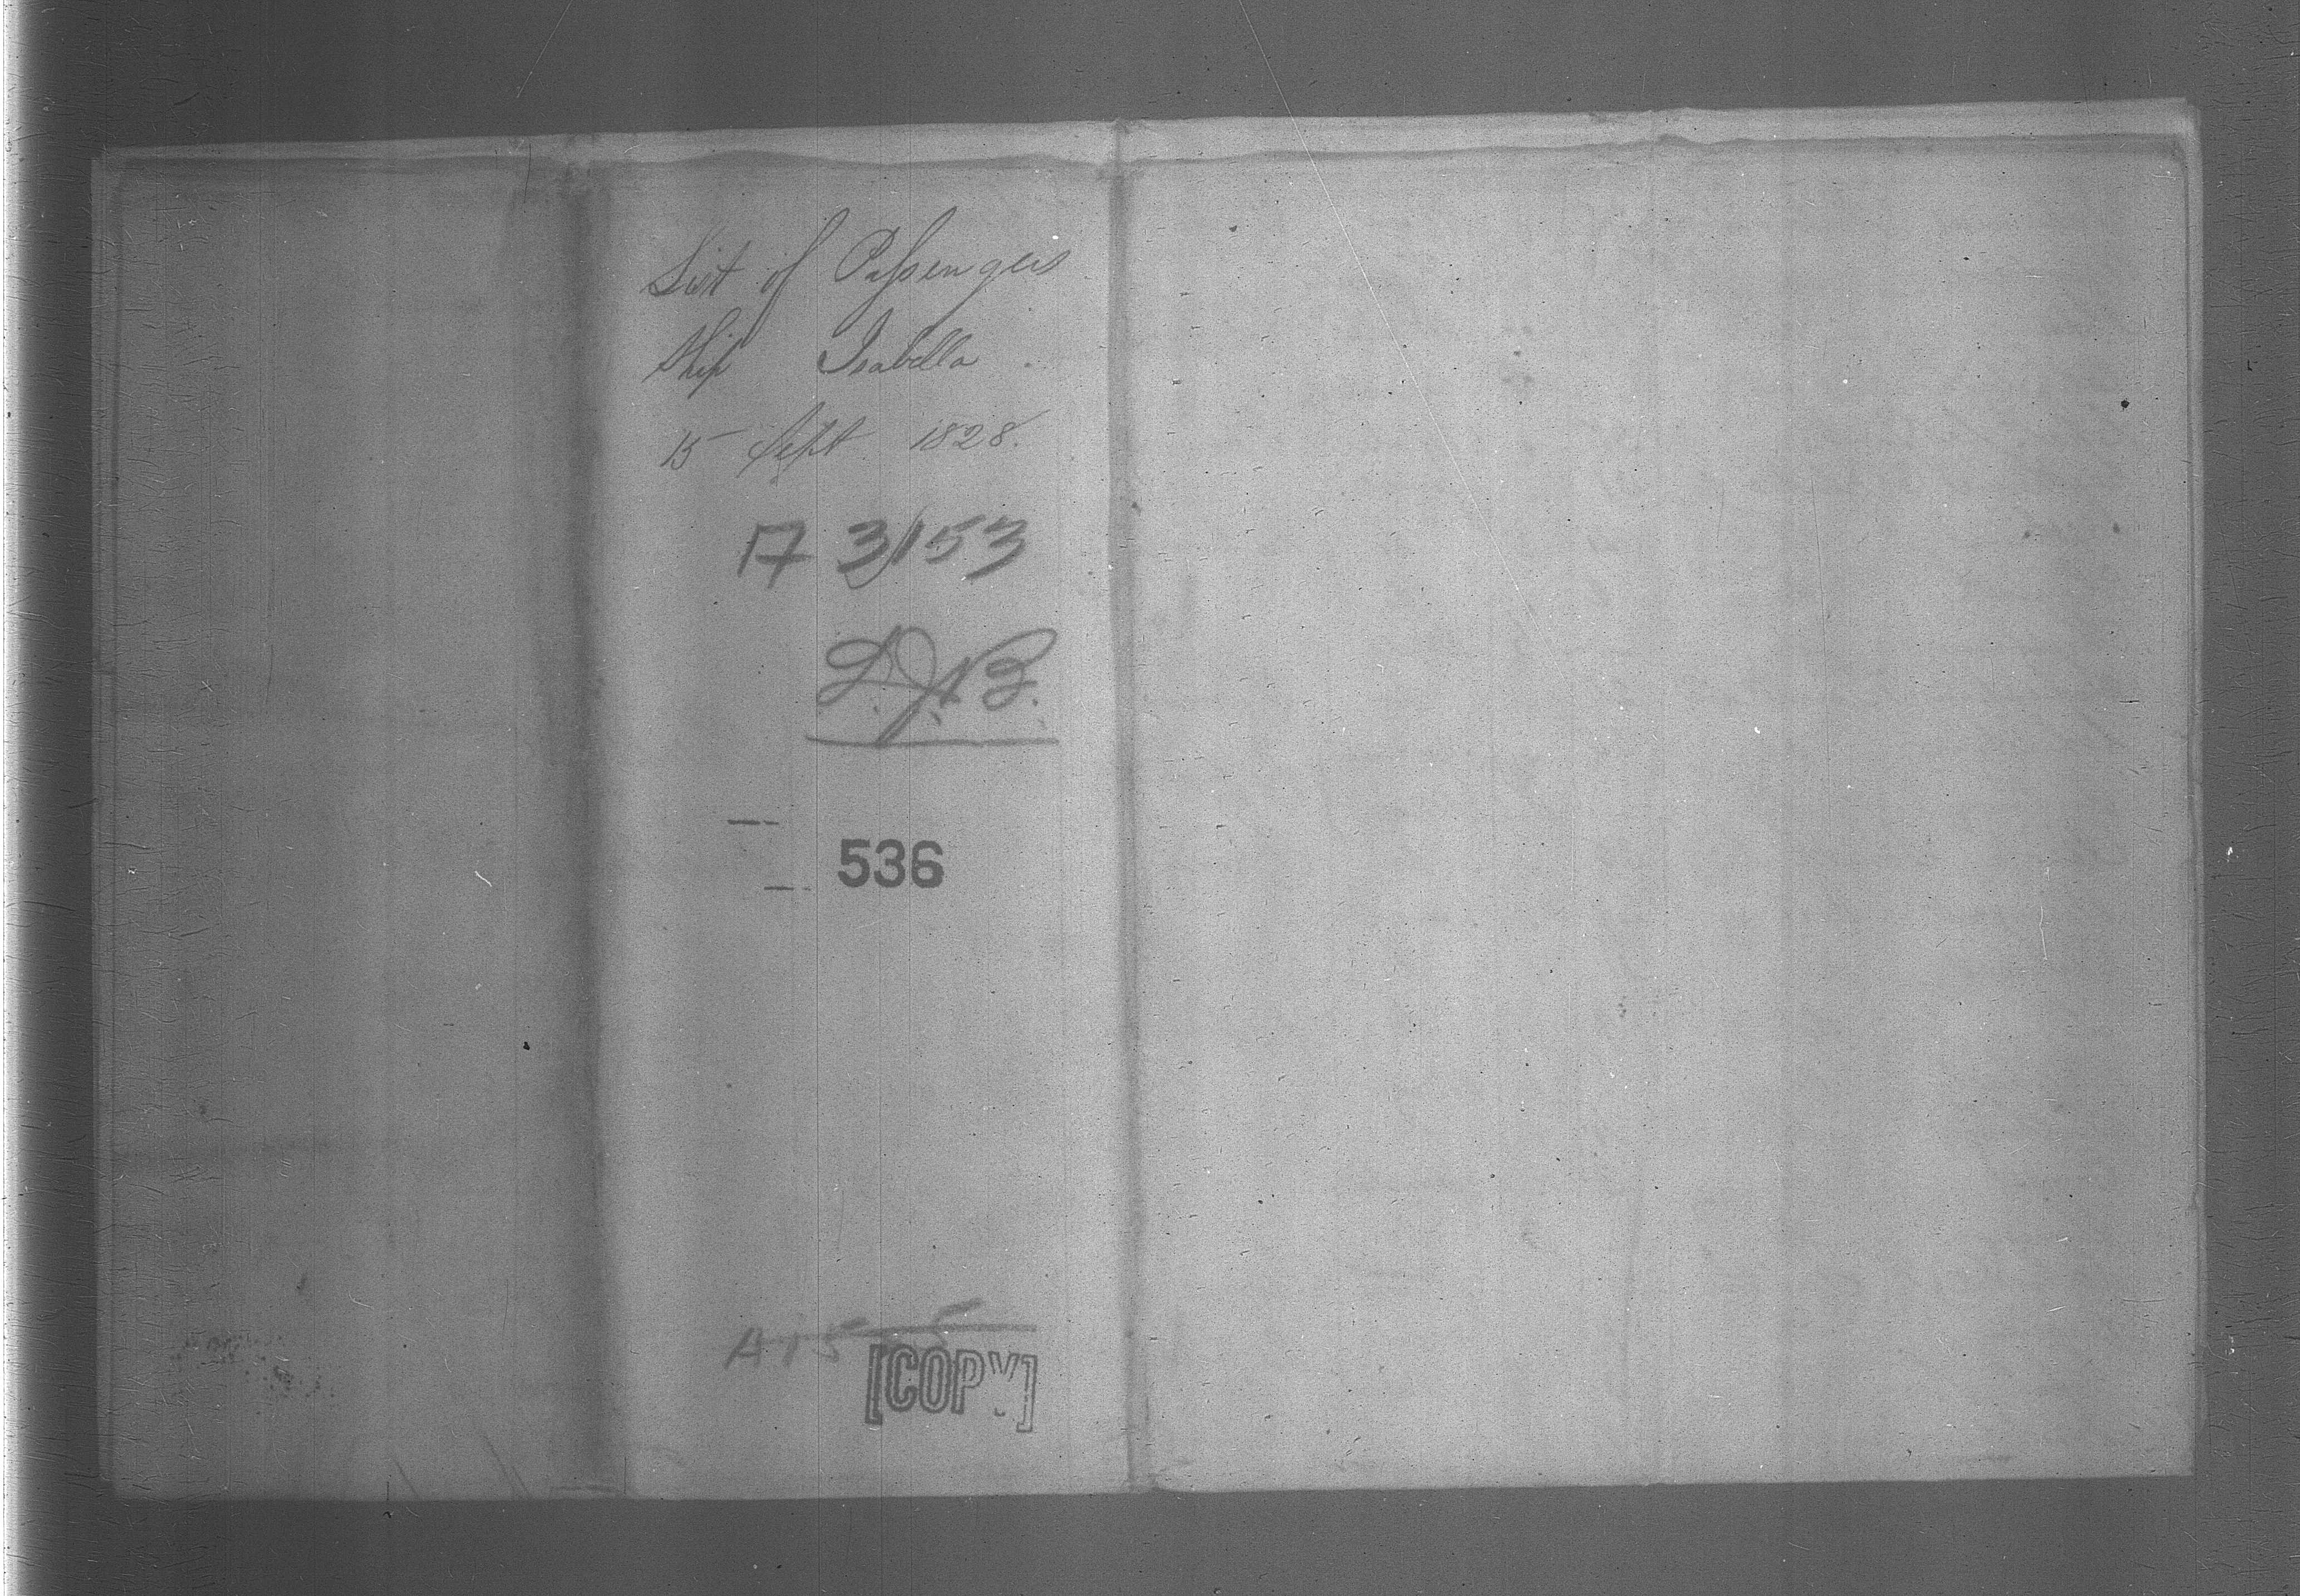 List of Passengers
Ship Isabella
15 Sept 1828.
17 3/153
L.J.B.
536
A 15
[COPY]